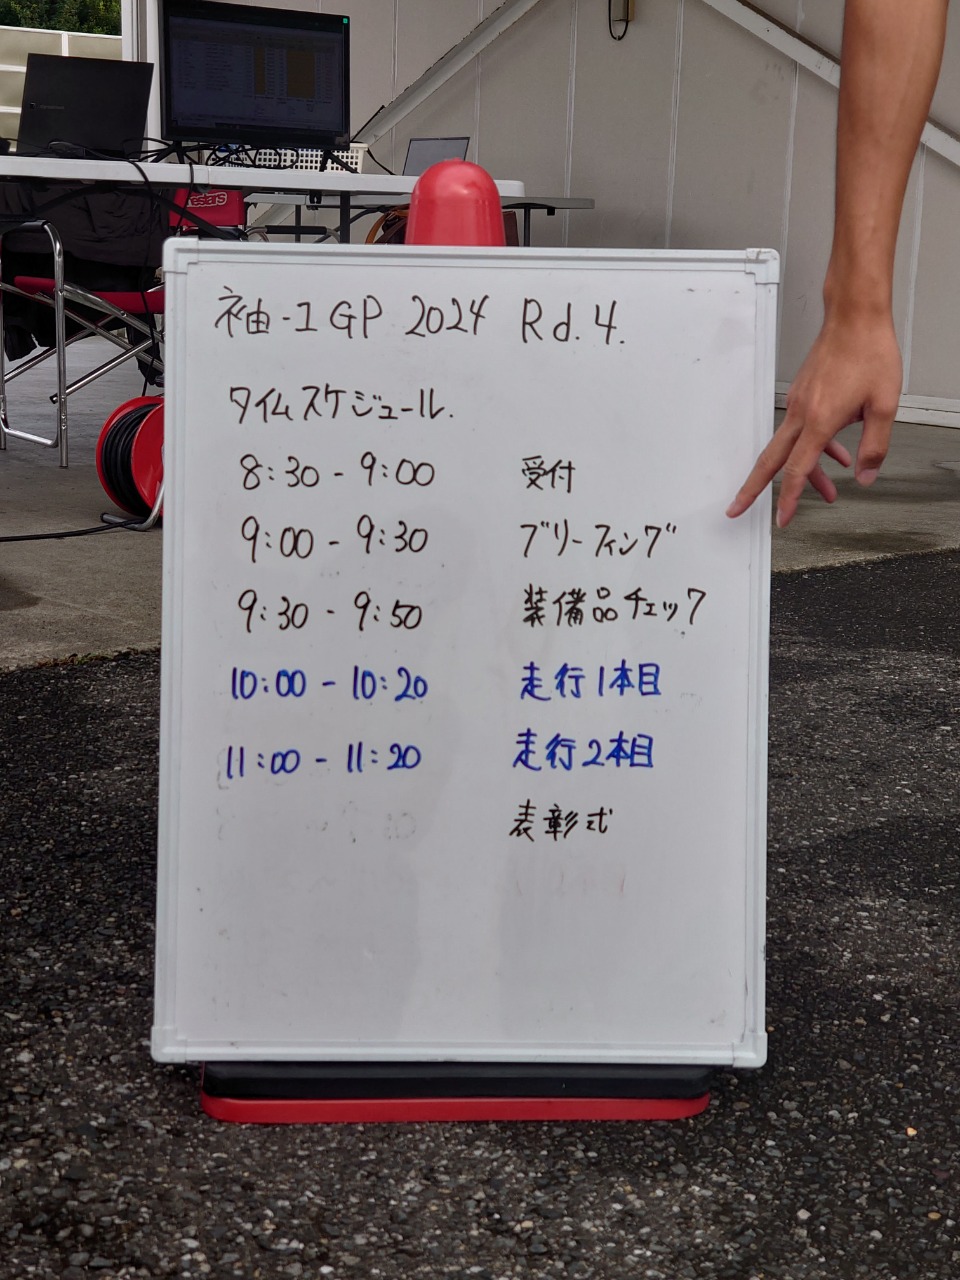 袖-1GP 2024 Rd.4.
タイムスケジュール.
8:30 - 9:00 受付
9:00 - 9:30 ブリーフィング
9:30 - 9:50 装備品チェック
10:00 - 10:20 走行1本目
11:00 - 11:20 走行2本目
表彰式